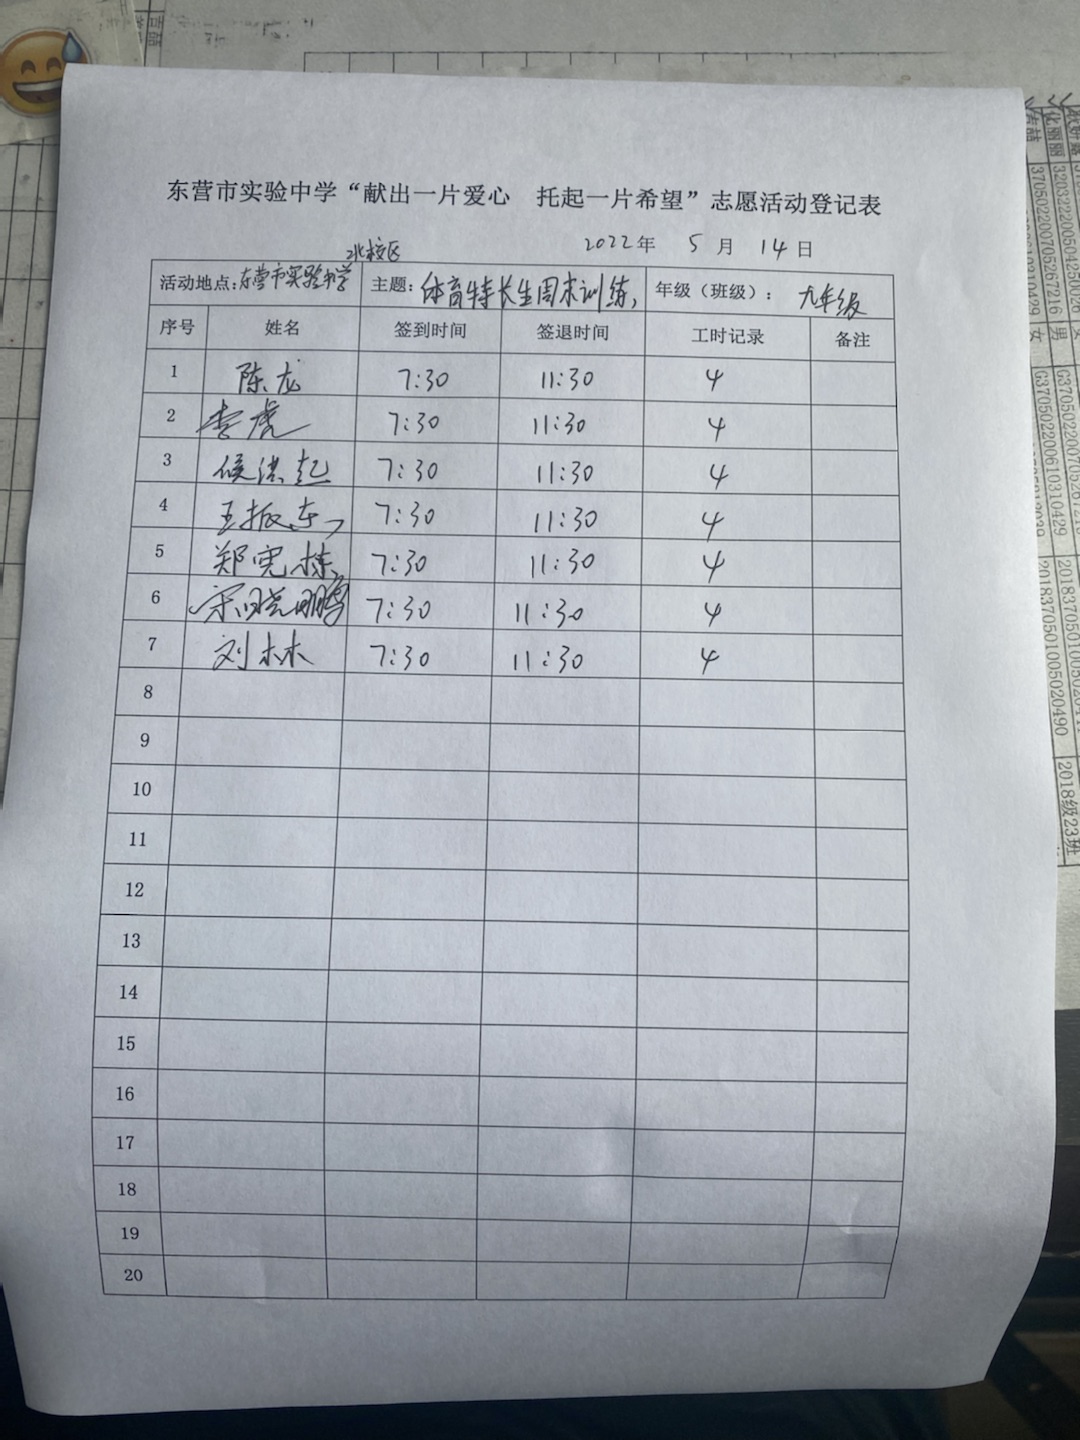 东营市实验中学“献出一片爱心 托起一片希望”志愿活动登记表
2022年 5月 14日
北校区
活动地点:东营市实验中学 主题:体育特长生周末训练 年级（班级）: 九年级
序号 姓名 签到时间 签退时间 工时记录 备注
1 陈龙 7:30 11:30 4
2 李虎 7:30 11:30 4
3 侯洪起 7:30 11:30 4
4 王振东 7:30 11:30 4
5 郑宪栋 7:30 11:30 4
6 宋晓鹏 7:30 11:30 4
7 刘林林 7:30 11:30 4
8
9
10
11
12
13
14
15
16
17
18
19
20
2018级23班